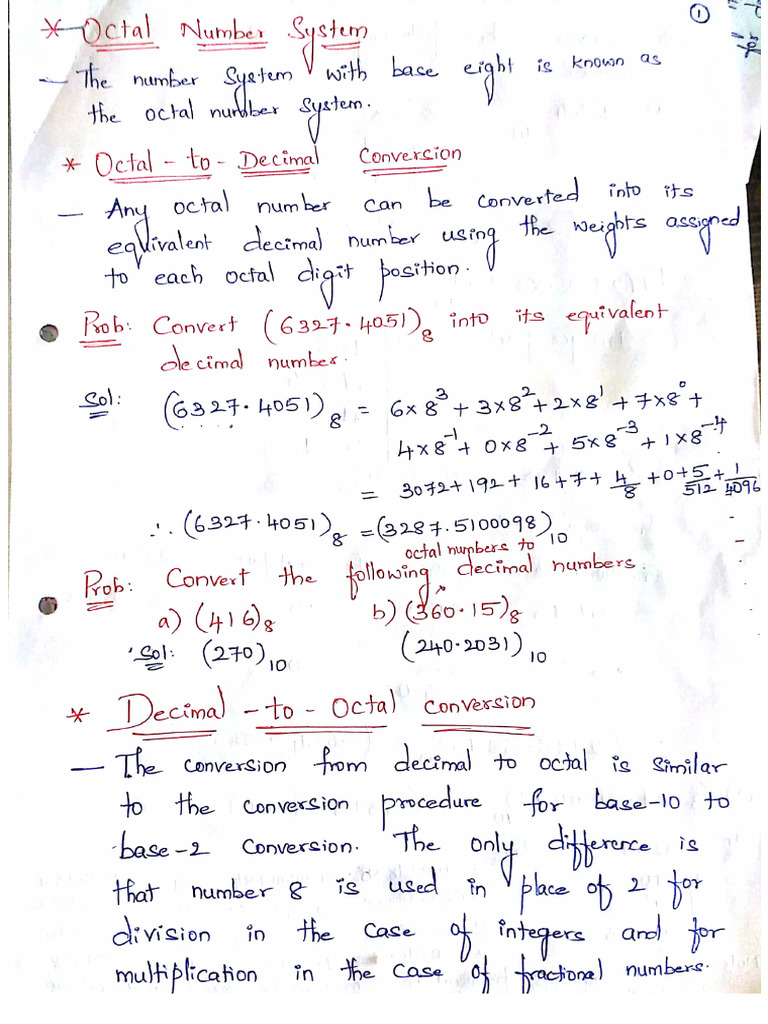 ①
* Octal Number System
– The number system with base eight is known as
the octal number system.
* Octal - to - Decimal Conversion
– Any octal number can be converted into its
equivalent decimal number using the weights assigned
to each octal digit position.
Prob: Convert (6327.4051)₈ into its equivalent
decimal number.
Sol: (6327.4051)₈ = 6×8³ + 3×8² + 2×8¹ + 7×8⁰ +
4×8⁻¹ + 0×8⁻² + 5×8⁻³ + 1×8⁻⁴
= 3072 + 192 + 16 + 7 + 4/8 + 0 + 5/512 + 1/4096
∴ (6327.4051)₈ = (3287.5100098)₁₀
octal numbers to
Prob: Convert the following decimal numbers.
a) (416)₈ b) (360.15)₈
Sol: (270)₁₀ (240.2031)₁₀
* Decimal - to - Octal Conversion
– The conversion from decimal to octal is similar
to the conversion procedure for base-10 to
base-2 conversion. The only difference is
that number 8 is used in place of 2 for
division in the case of integers and for
multiplication in the case of fractional numbers.